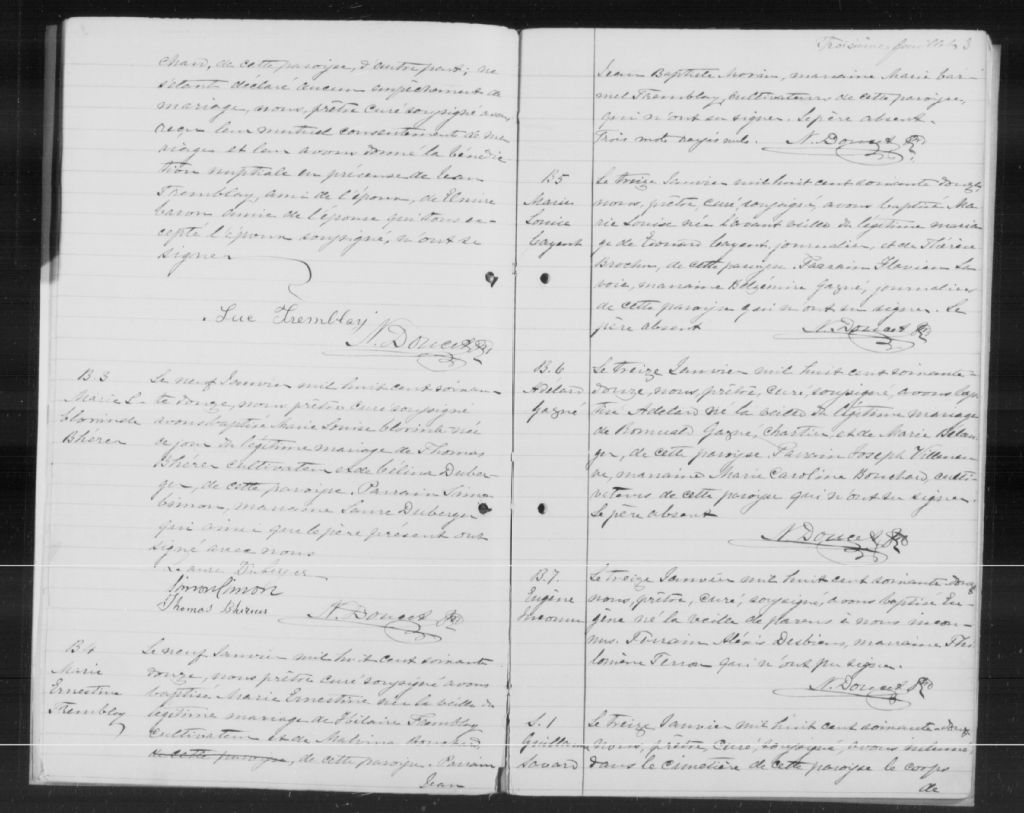 chard, de cette paroisse, d'autre part; ne
s'étant déclaré aucun empêchement de
mariage, nous, prêtre curé soussigné avons
reçu leur mutuel consentement de ma-
riage et leur avons donné la bénédic-
tion nuptiale en présence de Jean
Tremblay, ami de l'époux, de Elmire
baron amie de l'épouse qui tous ex-
cepté l'époux soussigné, n'ont su
signer
Luc Tremblay
N. Doucet Ptre
B.3
Marie L.
Clorinde
Bhérer
Le neuf Janvier mil huit cent soixan-
te douze, nous prêtre curé soussigné
avons baptisé Marie Louise Clorinde née
ce jour du légitime mariage de Thomas
Bhérer cultivateur et de Célina Duber-
ger, de cette paroisse. Parrain Simon
Simon, marraine Laure Duberger
qui ainsi que le père présent ont
signé avec nous
Laure Duberger
Simon Simon
Thomas Bherer
N. Doucet Ptre
B4
Marie
Ernestine
Tremblay
Le neuf Janvier mil huit cent soixante
douze, nous prêtre curé soussigné avons
baptisé Marie Ernestine née la veille du
légitime mariage de Hilaire Tremblay
Cultivateur et de Malvina
de cette paroisse, de cette paroisse. Parrain
Jean
Troisième feuillet 3
Jean Baptiste Morin, marraine Marie Car-
mel Tremblay, cultivateurs de cette paroisse,
qui n'ont su signer. Le père absent.
Trois mots rayés nuls. N. Doucet Ptre
B5
Marie
Louise
Gagent
Le treize Janvier mil huit cent soixante douze,
nous, prêtre, curé soussigné, avons baptisé Ma-
rie Louise née l'avant veille du légitime maria-
ge de Edouard Gagent, journalier, et de Thérèse
Brochu, de cette paroisse. Parrain Flavien Sa-
voie, marraine Gagné, journaliers
de cette paroisse qui n'ont su signer. Le
père absent N. Doucet Ptre
B.6
Adélard
Gagné
Le treize Janvier mil huit cent soixante-
douze, nous, prêtre, curé, soussigné, avons bap-
tisé Adélard né la veille du légitime mariage
de Romuald Gagné, charretier, et de Marie Bélan-
ger, de cette paroisse. Parrain Joseph Villeneu-
ve, marraine Marie Caroline Bouchard culti-
vateurs de cette paroisse qui n'ont su signer.
Le père absent
N. Doucet Ptre
B.7.
Eugène
Inconnu
Le treize Janvier mil huit cent soixante douze
nous, prêtre, curé, soussigné, avons baptisé Eu-
gène né la veille de parens à nous incon-
nus. Parrain Alexis Desbiens, marraine Phi-
lomène Perron qui n'ont pu signer.
N. Doucet Ptre
S.1
Guillaume
Savard
Le treize Janvier mil huit cent soixante-douze
nous, prêtre, curé, soussigné, avons inhumé
dans le cimetière de cette paroisse le corps
de